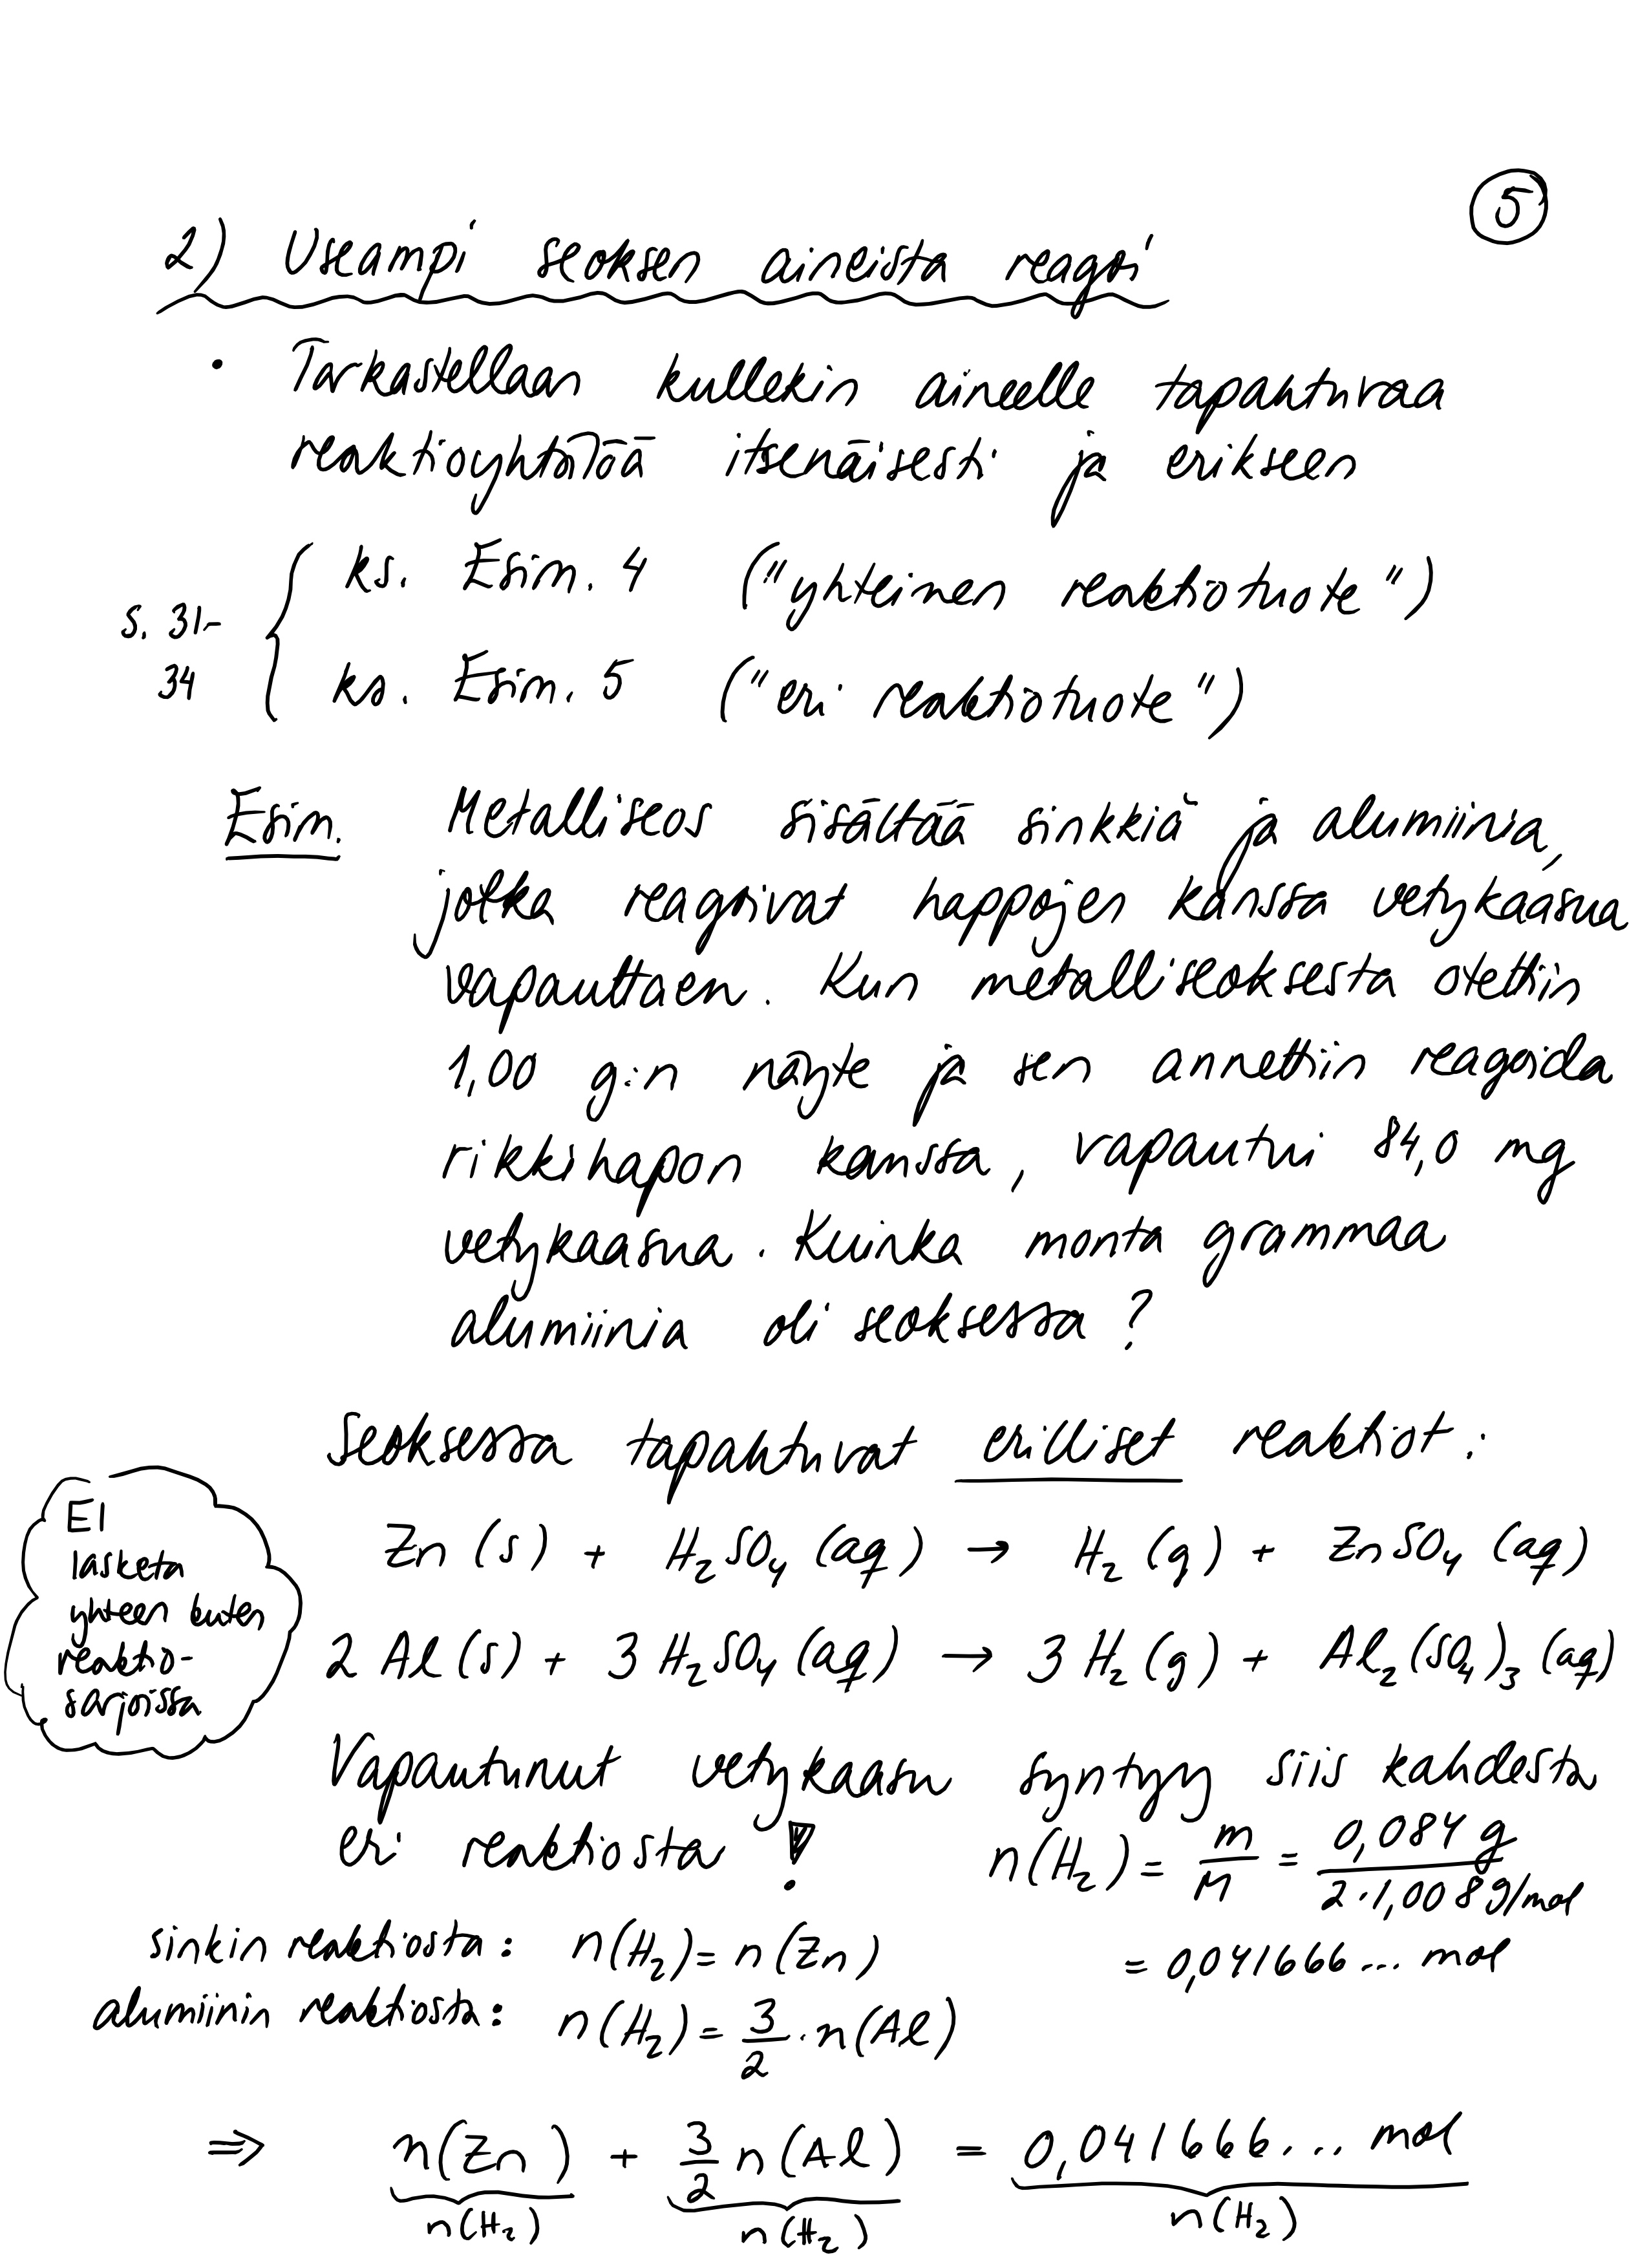 5
2) Useampi seoksen aineista reagoi
• Tarkastellaan kullekin aineelle tapahtuvaa
reaktioyhtälöä itsenäisesti ja erikseen
s. 31-34
ks. Esim. 4 ("yhteinen reaktiotuote")
ks. Esim. 5 ("eri reaktiotuote")
Esim. Metalliseos sisältää sinkkiä ja alumiinia,
jotka reagoivat happojen kanssa vetykaasua
vapauttaen. Kun metalliseoksesta otettiin
1,00 g:n näyte ja sen annettiin reagoida
rikkihapon kanssa, vapautui 84,0 mg
vetykaasua. Kuinka monta grammaa
alumiinia oli seoksessa?
Seoksessa tapahtuvat erilliset reaktiot:
EI
lasketa
yhteen kuten
reaktio-
sarjoissa
Zn (s) + H₂SO₄ (aq) → H₂ (g) + ZnSO₄ (aq)
2 Al (s) + 3 H₂SO₄ (aq) → 3 H₂ (g) + Al₂(SO₄)₃ (aq)
Vapautunut vetykaasu syntyy siis kahdesta
eri reaktiosta !
n(H₂) = m/M = 0,084 g / 2·1,008 g/mol
= 0,041666... mol
sinkin reaktiosta: n(H₂) = n(Zn)
alumiinin reaktiosta: n(H₂) = 3/2 · n(Al)
⇒ n(Zn) + 3/2 n(Al) = 0,041666... mol
n(H₂) n(H₂) n(H₂)